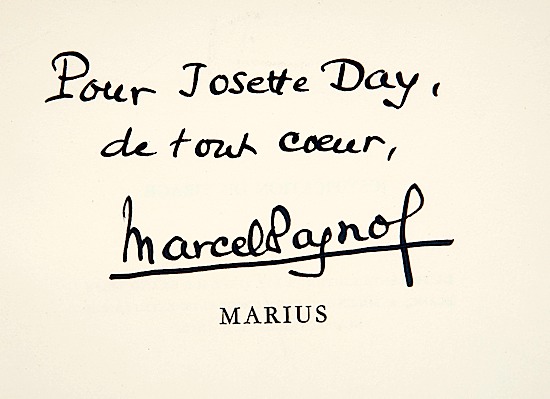 Pour Josette Day,
de tout cœur,
Marcel Pagnol
MARIUS